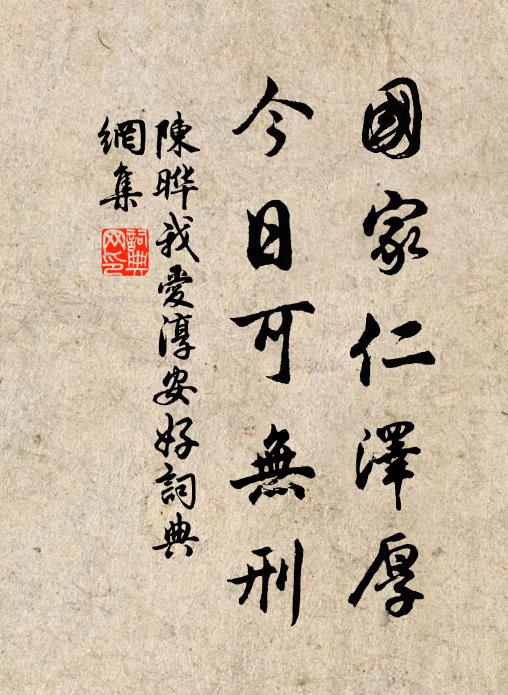 國家仁澤厚
今日可無刑
陳曄我愛淳安好詞典
網集
詞典网印